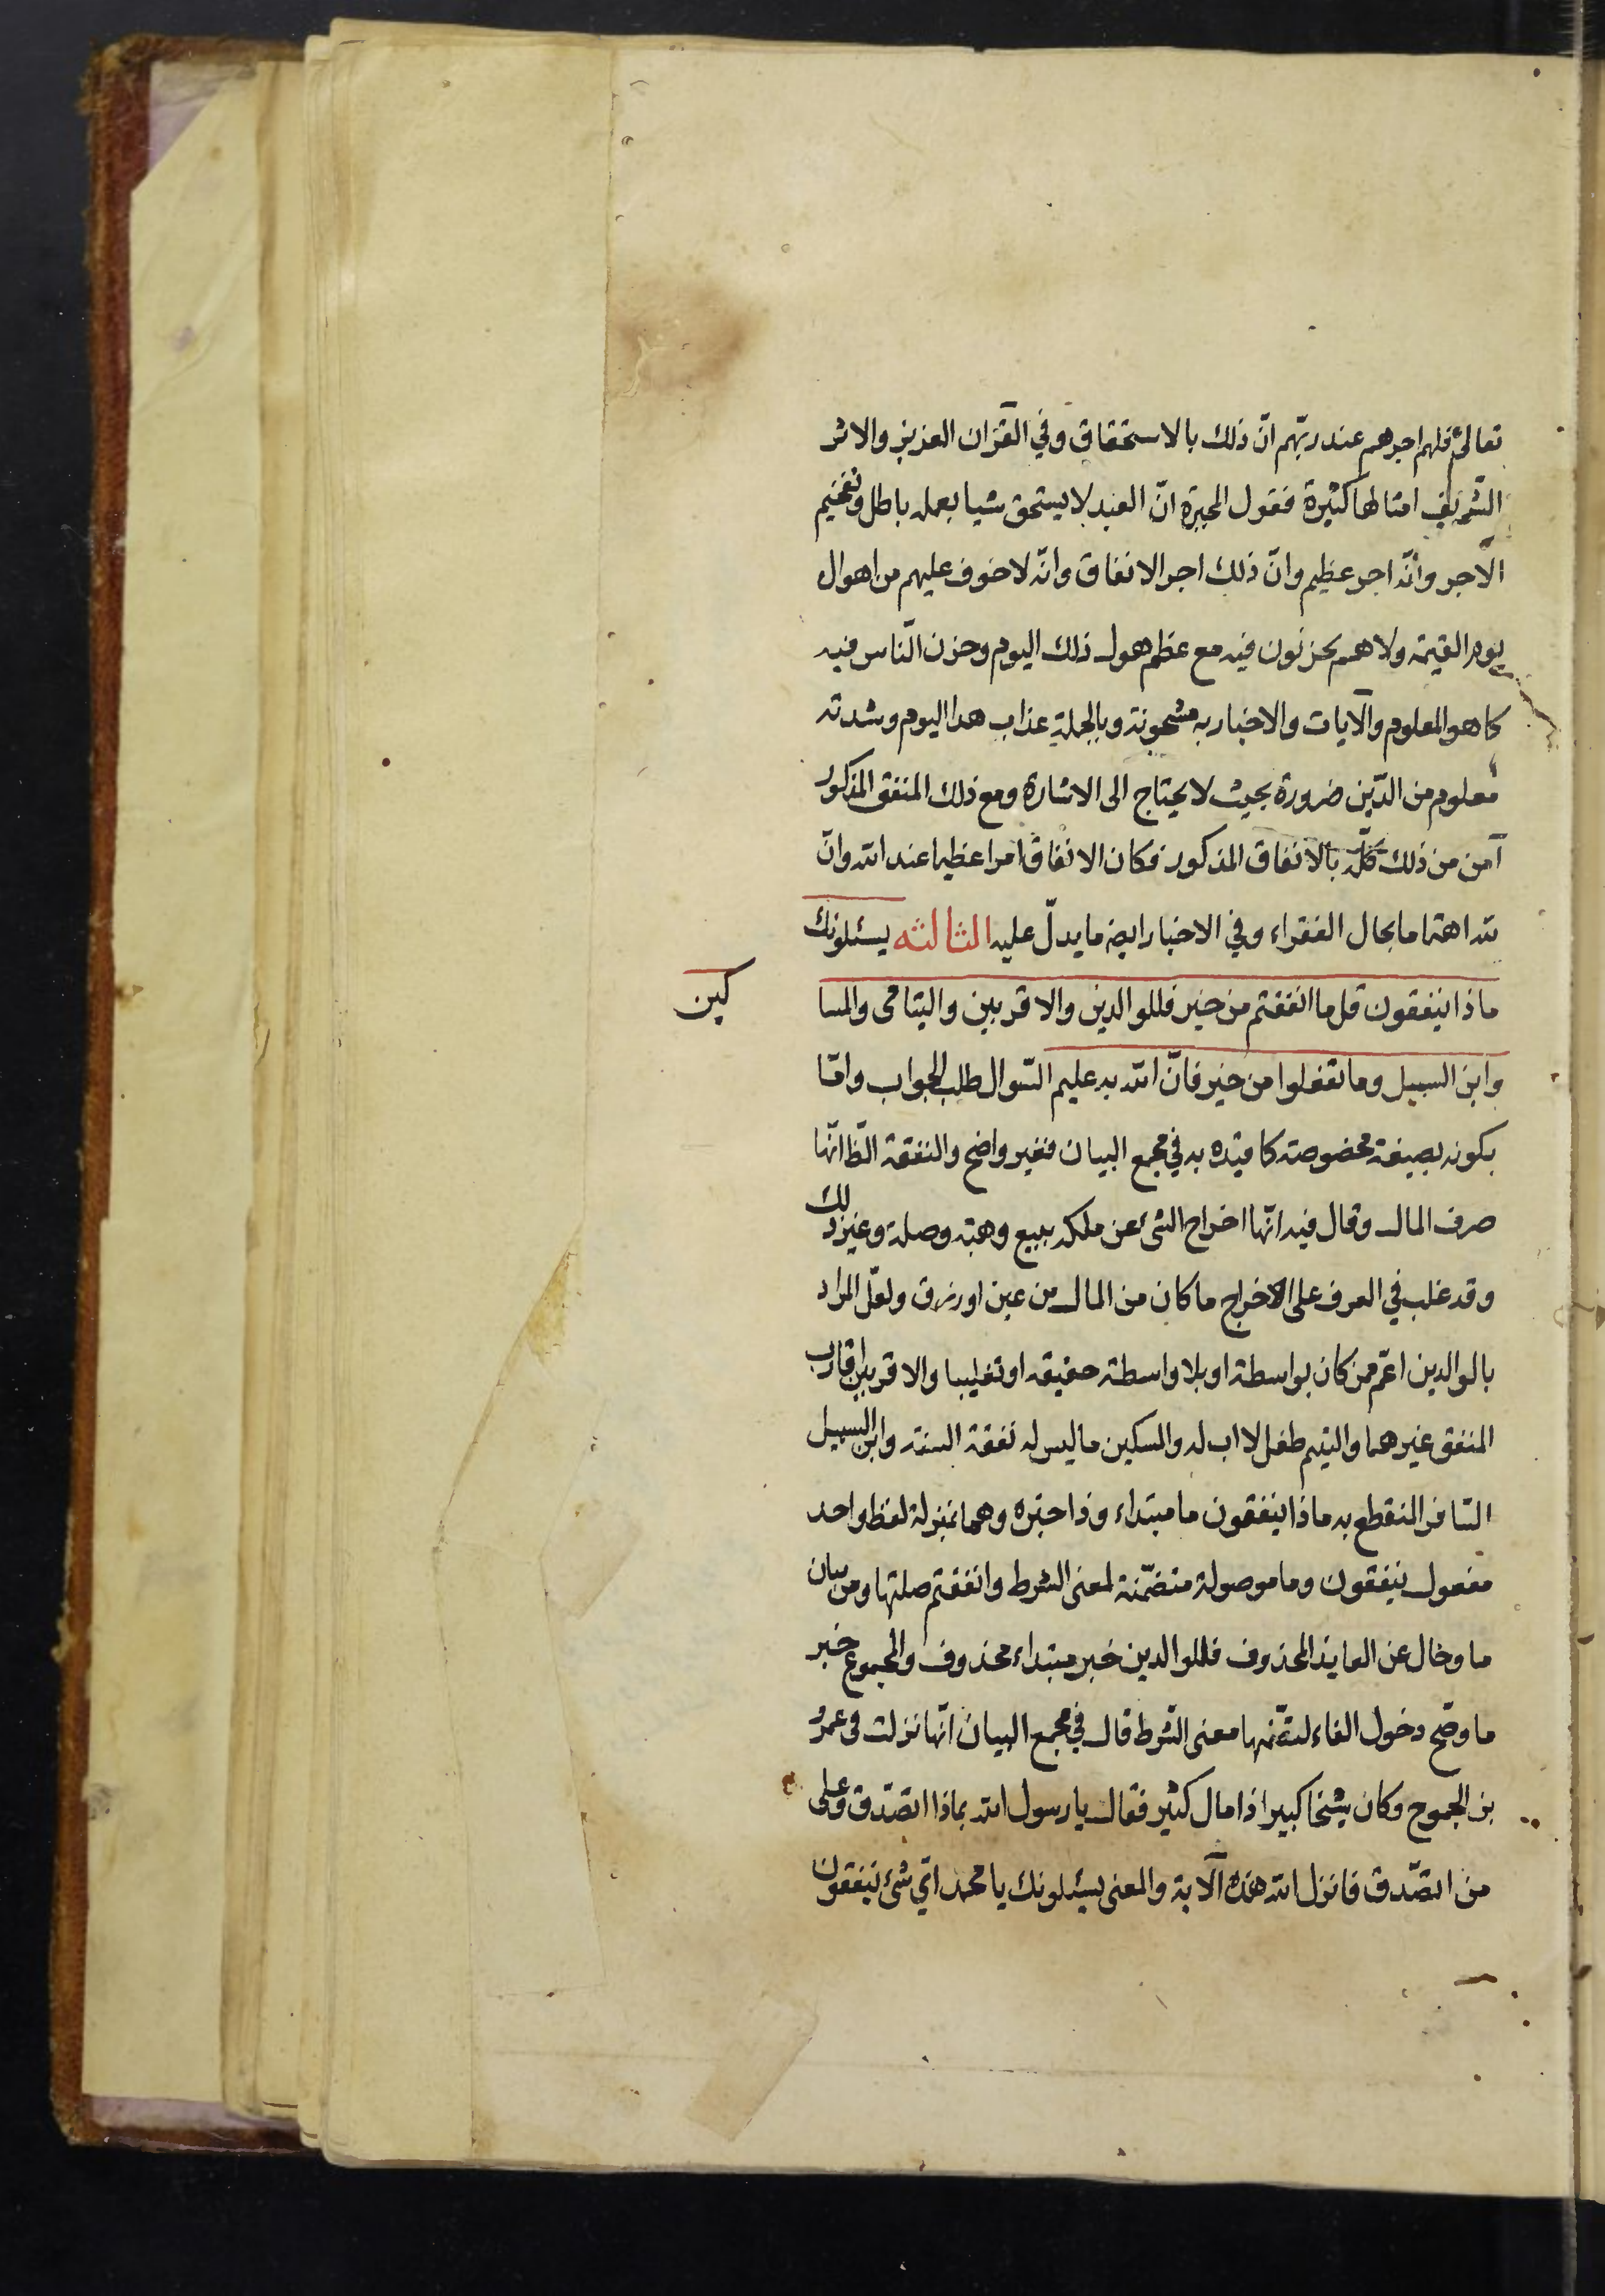 تعالى فلهم اجرهم عند ربّهم انّ ذلك بالاستحقاق وفي القرآن العزيز والاثر
الشّريف امثالها كثيرة فقول المجبرة انّ العبد لا يستحق شيا بعمله باطل وتفخيم
الاجر وانّه اجر عظيم وانّ ذلك اجر الانفاق وانّه لا خوف عليهم من اهوال
يوم القيمة ولا هم يحزنون فيه مع عظم هول ذلك اليوم وحزن النّاس فيه
كما هو المعلوم والآيات والاخبار به مشحونة وبالجملة عذاب هذا اليوم وشدته
معلوم من الدّين ضرورة بحيث لا يحتاج الى الاشارة ومع ذلك المنفق المذكور
آمن من ذلك كلّه بالانفاق المذكور فكان الانفاق امرا عظيما عند الله وانّ
لله اهتماما بحال الفقراء وفي الاخبار ايضا ما يدلّ عليه الثالثه يسئلونك
ماذا ينفقون قل ما انفقتم من خير فللوالدين والاقربين واليتامى والمسا
كين
وابن السبيل وما تفعلوا من خير فانّ الله به عليم السّوال طلب الجواب وامّا
بكونه بصيغة مخصوصة كما قيّده به في مجمع البيان فغير واضح والنفقة الظّ انّها
صرف المال وقال فيه انّها اخراج الشئ عن ملكه ببيع وهبة وصلة وغير ذلك
وقد غلب في العرف على الاخراج ما كان من المال من عين او رزق ولعلّ المراد
بالوالدين اعمّ ممن كان بواسطة او بلا واسطة حقيقه او تغليبا والاقربين اقارب
المنفق غيرهما واليتيم طفل لا اب له والسكين ما ليس له نفقة السنة وابن السبيل
السافر المنقطع به ماذا ينفقون ما مبتداء وذا خبره وهما بمنزلة لفظ واحد
مفعول ينفقون وما موصولة متضمّنة لمعنى الشرط وانفقتم صلتها ومن بيان
ما وحال عن العايد المحذوف فللوالدين خبر مبتداء محذوف والمجموع خبر
ما وصّح دخول الفاء لتضمّنها معنى الشّرط قال في مجمع البيان انّها نزلت في عمرو
بن الجموح وكان شيخا كبيرا ذا مال كثير فقال يا رسول الله بماذا اتصدّق وعلى
من اتصّدق فانزل الله هذه الآية والمعنى يسئلونك يا محمد اىّ شئ ينفقون